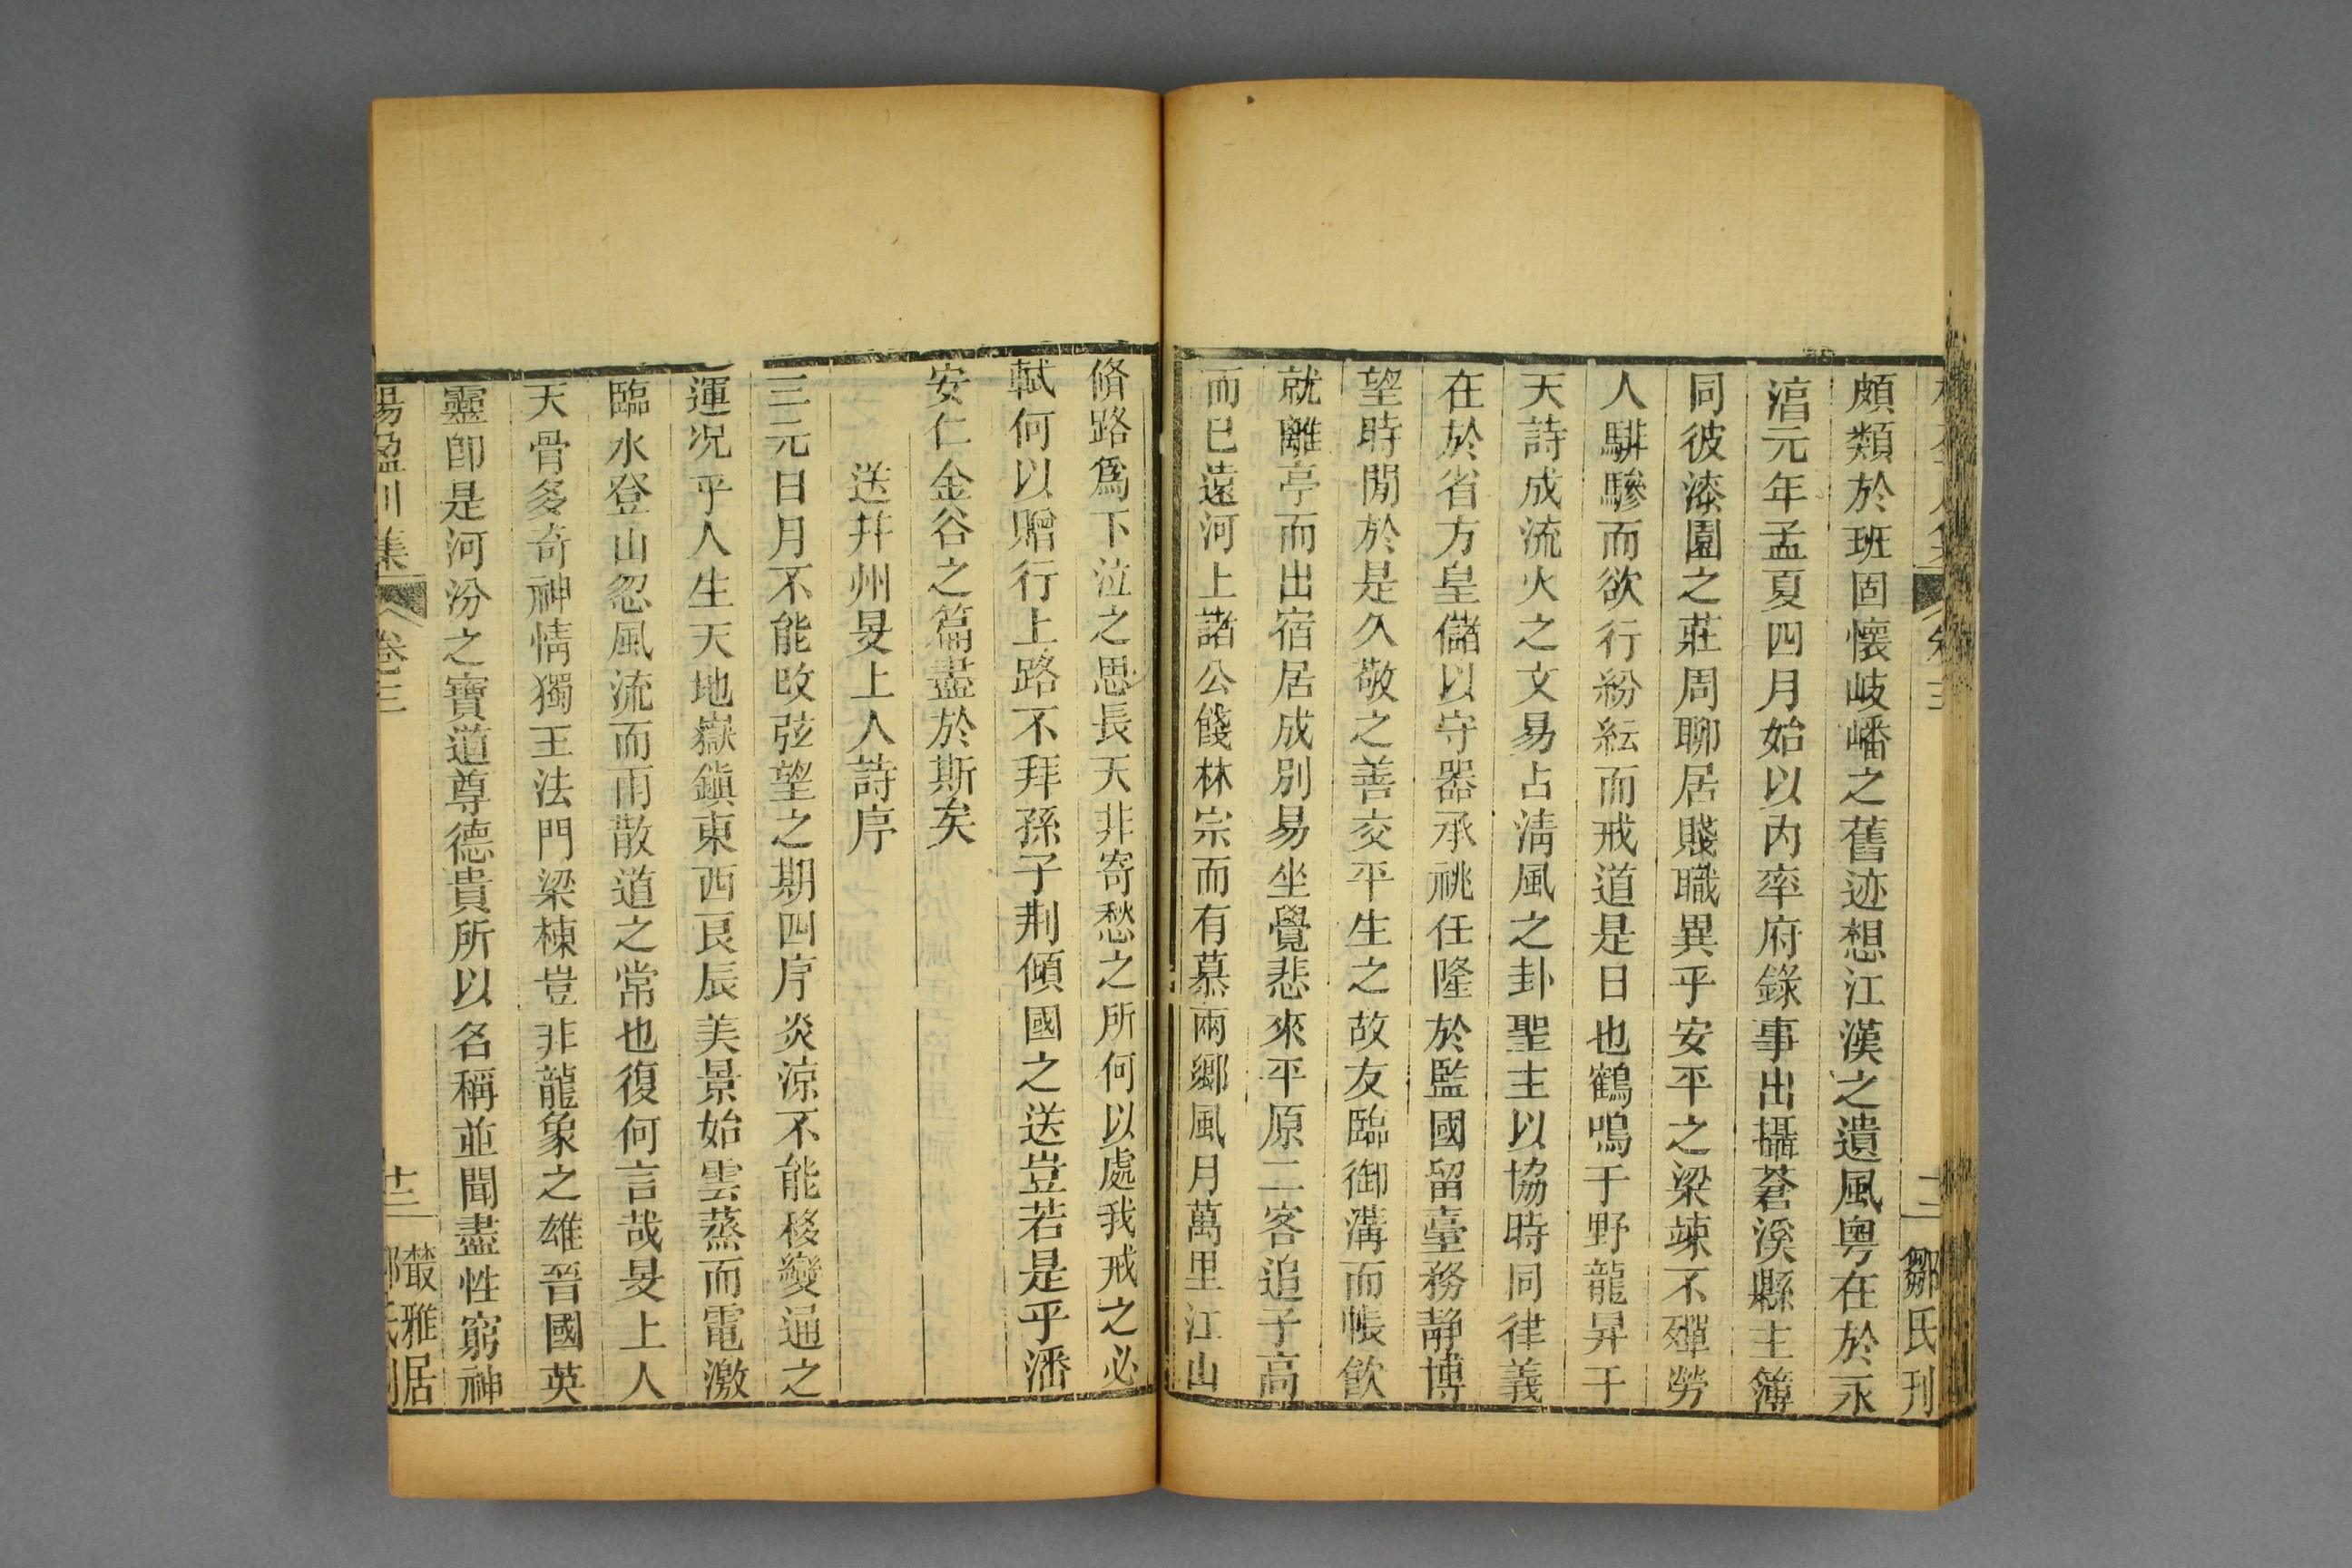 鄒氏刊
頗類於班固懷岐嶓之舊迹想江漢之遺風粵在於永
湻元年孟夏四月始以內率府錄事出攝蒼溪縣主簿
同彼漆園之莊周聊居賤職異乎安平之梁竦不殫勞
人騑驂而欲行紛紜而戒道是日也鶴鳴于野龍昇于
天詩成流火之文易占淸風之卦聖主以協時同律義
在於省方皇儲以守器承祧任隆於監國留臺務靜博
望時閒於是久敬之善交平生之故友臨御溝而帳飮
就離亭而出宿居成別易坐覺悲來平原二客追子高
而已遠河上諸公餞林宗而有慕兩鄉風月萬里江山
脩路爲下泣之思長天非寄愁之所何以處我戒之必
軾何以贈行上路不拜孫子荆傾國之送豈若是乎潘
安仁金谷之篇盡於斯矣
送幷州旻上人詩序
三元日月不能改弦望之期四序炎涼不能移變通之
運况乎人生天地嶽鎭東西良辰美景始雲蒸而電激
臨水登山忽風流而雨散道之常也復何言哉旻上人
天骨多奇神情獨王法門梁棟豈非龍象之雄晉國英
靈卽是河汾之寶道尊德貴所以名稱並聞盡性窮神
楊盈川集 卷三 十三 叢雅居
鄒氏刊